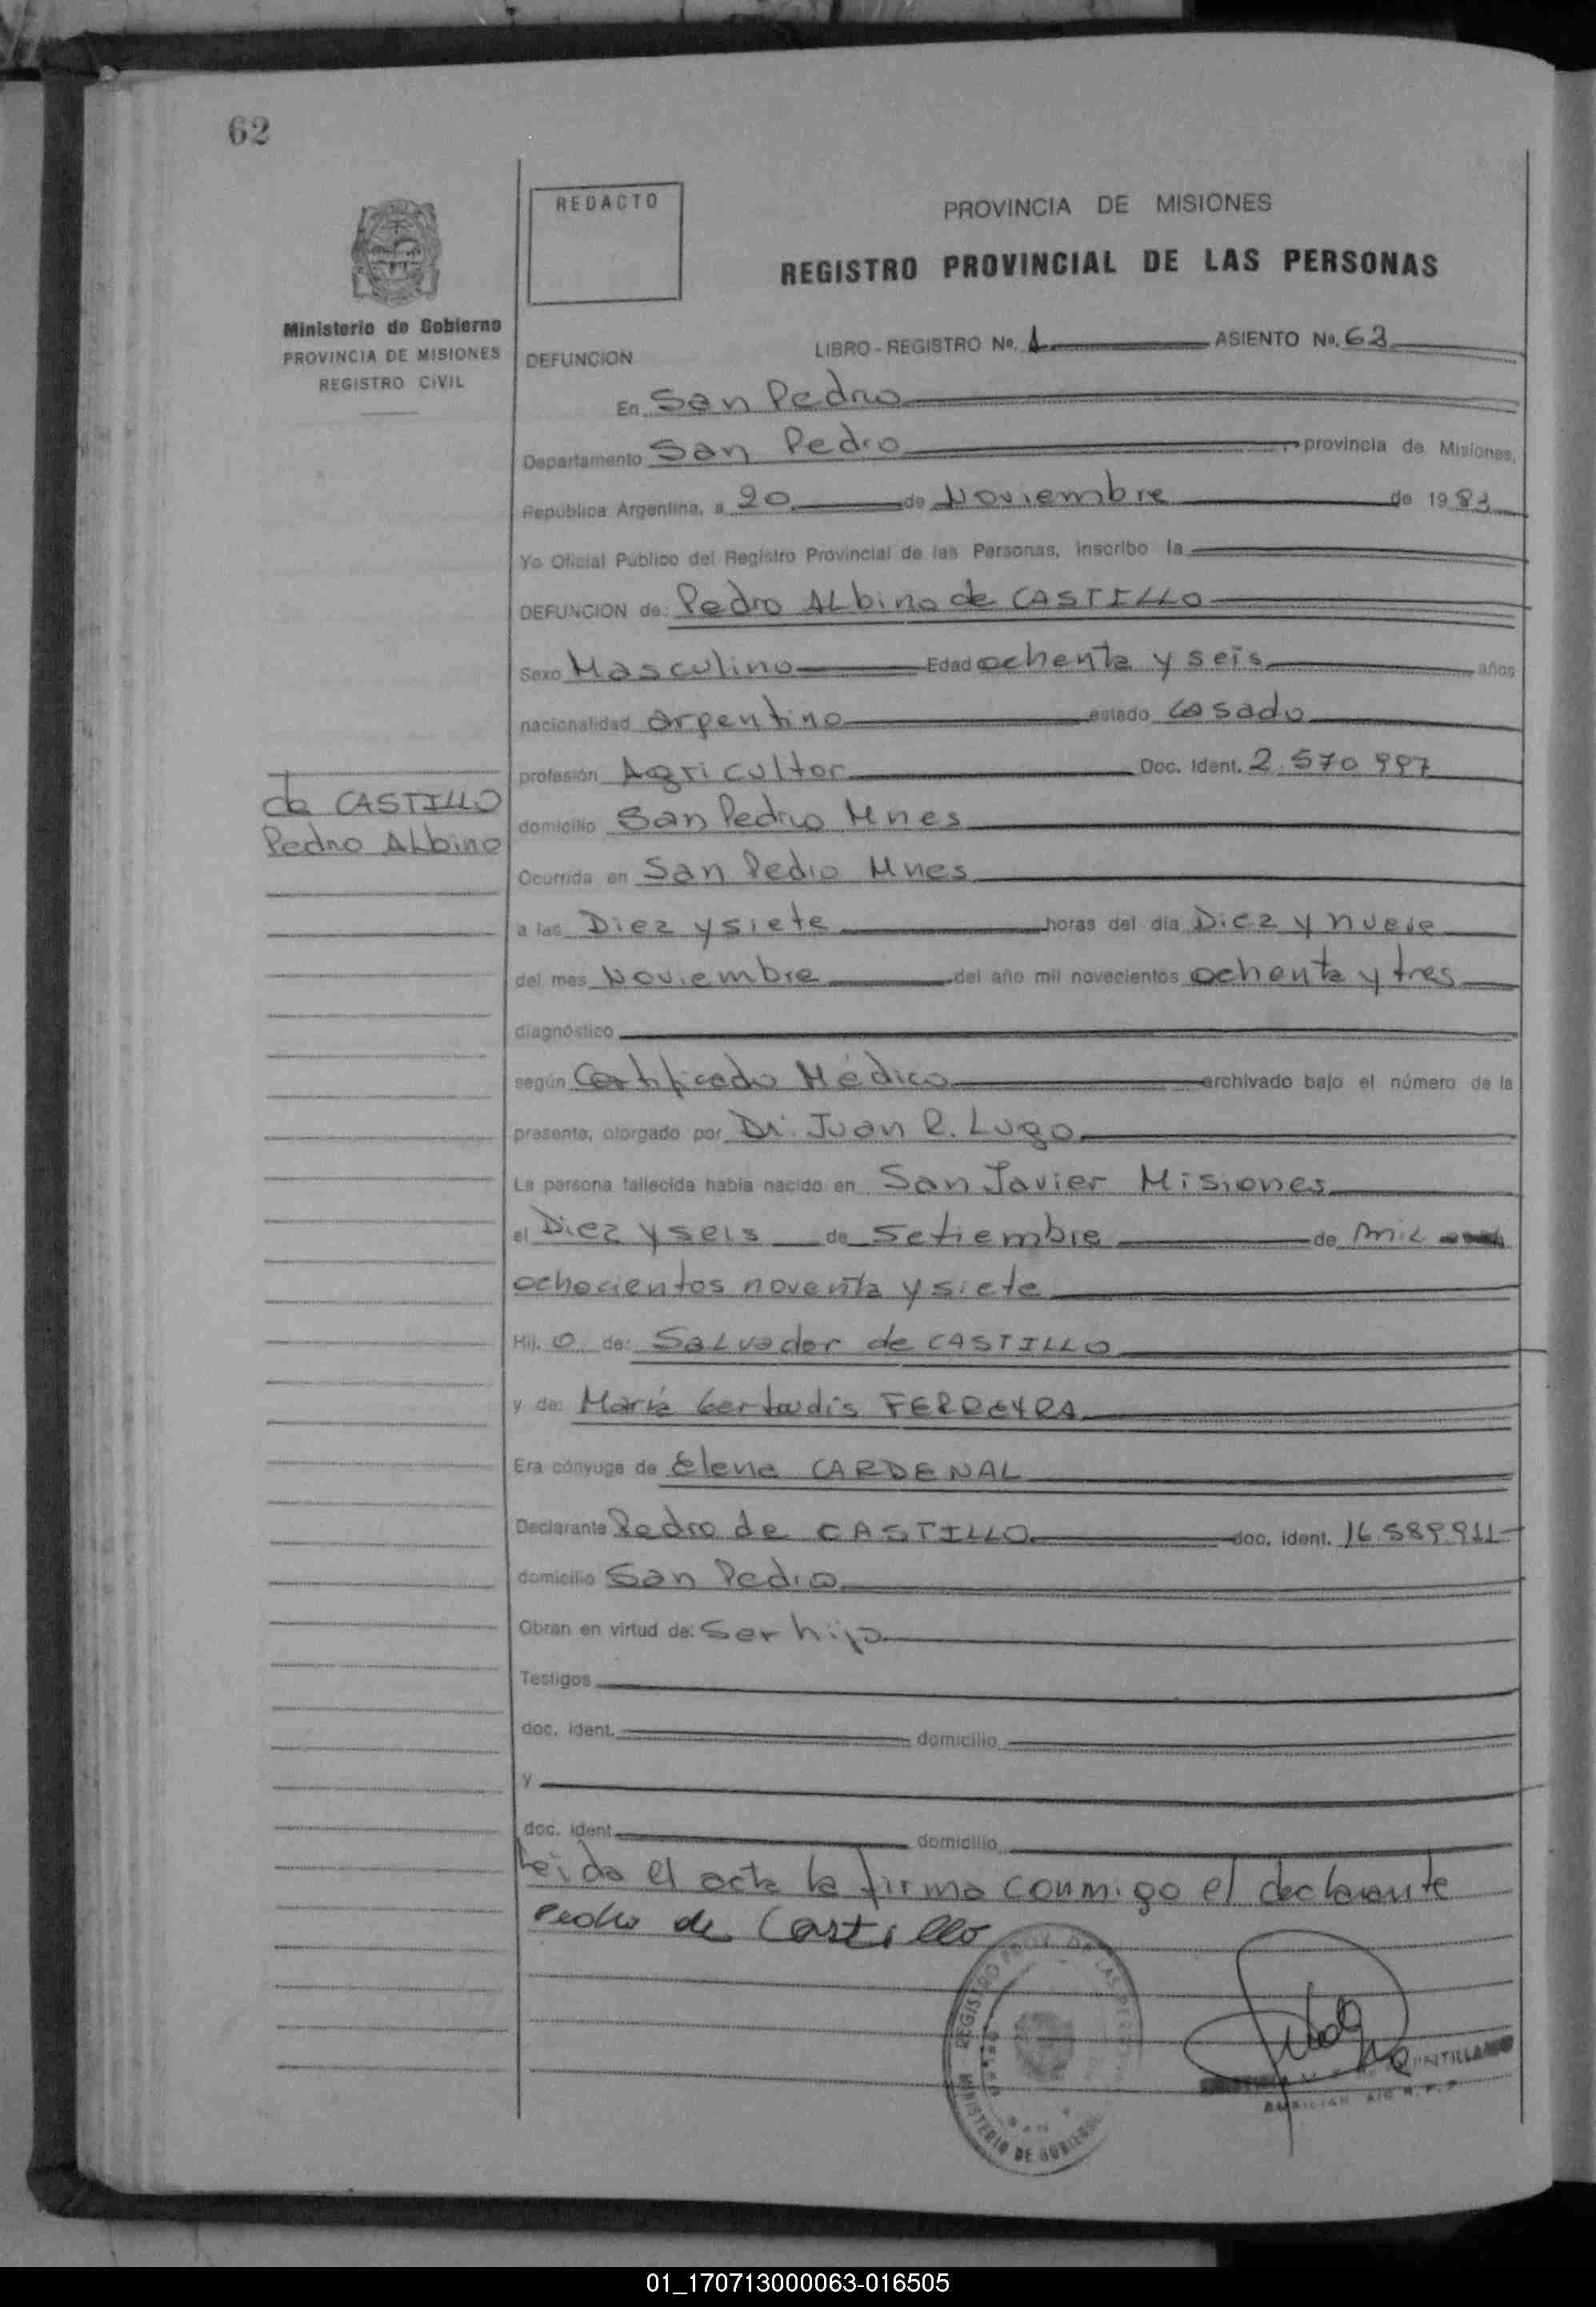 62
REDACTO
PROVINCIA DE MISIONES
REGISTRO PROVINCIAL DE LAS PERSONAS
Ministerio de Gobierno
PROVINCIA DE MISIONES
REGISTRO CIVIL
DEFUNCION LIBRO - REGISTRO No. 1 ASIENTO No. 62
En San Pedro
Departamento San Pedro provincia de Misiones,
República Argentina, a 20 de Noviembre de 1983
Yo Oficial Público del Registro Provincial de las Personas, inscribo la
DEFUNCION de: Pedro ALbino de CASTILLO
Sexo Masculino Edad ochenta y seis años
nacionalidad argentino estado casado
profesión Agricultor Doc. Ident. 2.570 997
de CASTILLO
Pedro ALbino
domicilio San Pedro Mnes
Ocurrida en San Pedro Mnes
a las Diez y siete horas del día Diez y nueve
del mes Noviembre del año mil novecientos ochenta y tres
diagnóstico
según Certificado Médico archivado bajo el número de la
presente, otorgado por Dr. Juan R. Lugo
La persona fallecida había nacido en San Javier Misiones
el Diez y seis de Setiembre de mil
ochocientos noventa y siete
Hij. o de: SaLvador de CASTILLO
y de: María Gertrudis FERREYRA
Era cónyuge de Elena CARDENAL
Declarante Pedro de CASTILLO doc. ident. 16.589.911
domicilio San Pedro
Obran en virtud de: Ser hijo
Testigos
doc. ident. domicilio
y
doc. ident. domicilio
Leida el acta la firma conmigo el declarante
Pedro de Castillo
REGISTRO PROV. DE LAS PERS
MINISTERIO DE GOBIERNO
QUINTILLA
AUXILIAR
01_170713000063-016505